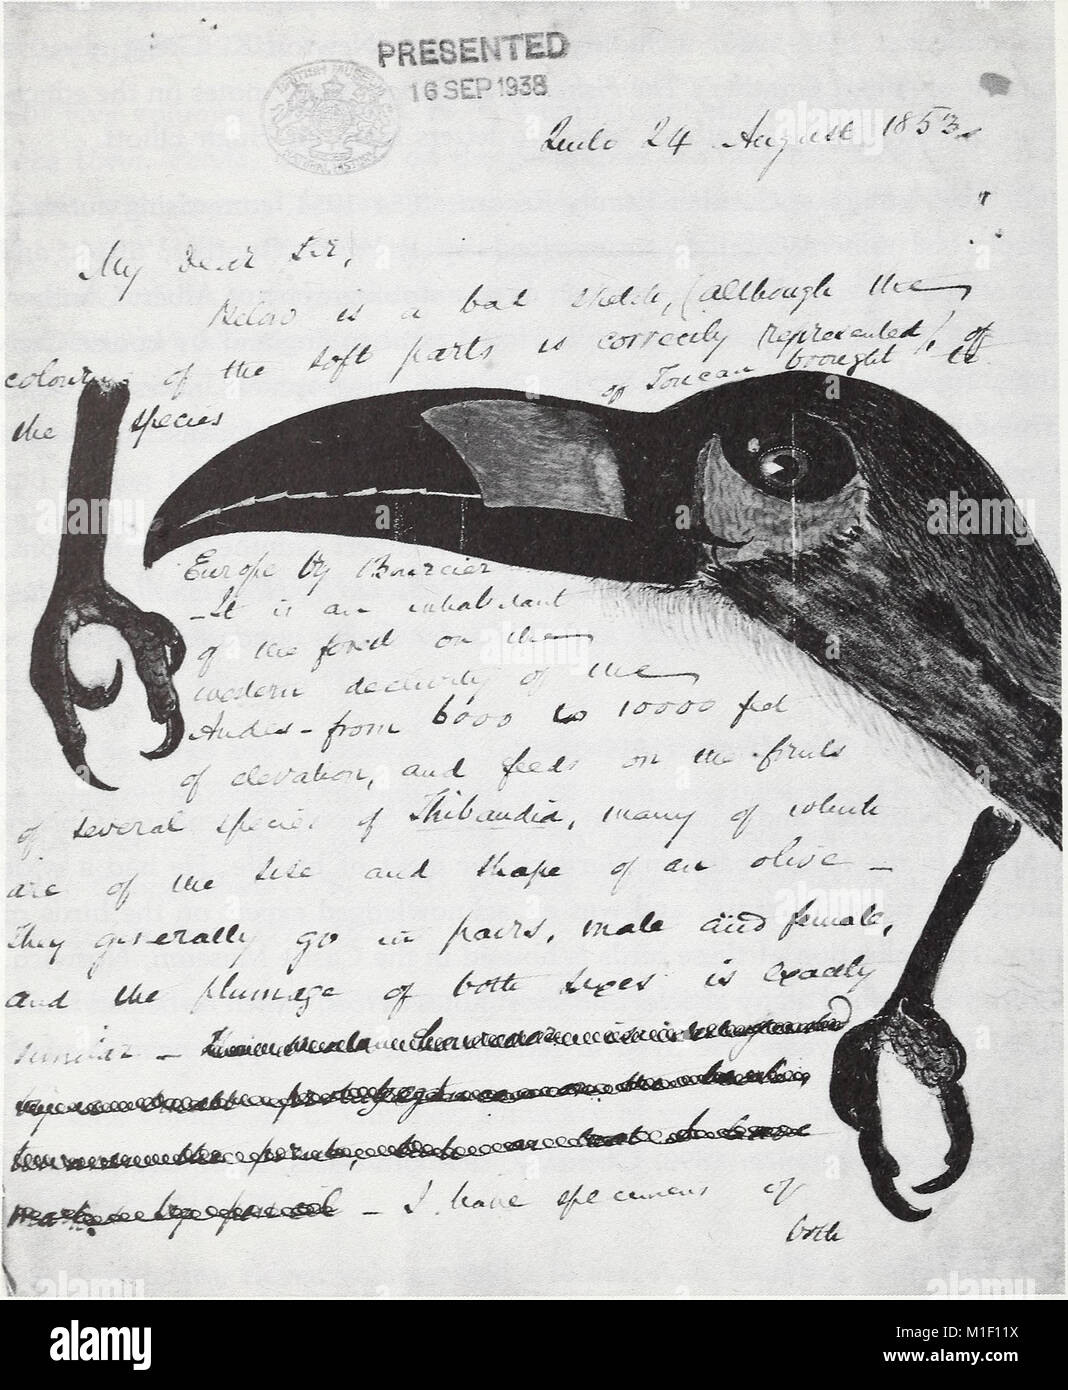 PRESENTED
16 SEP 1938
BRITISH MUSEUM
NATURAL HISTORY
Quito 24 August 1853.
My dear Sir,
Below is a bad sketch, (although the
colouring of the soft parts is correctly represented) of
the species of Toucan brought to
Europe by Bourcier
- It is an inhabitant
of the forest on the
western declivity of the
Andes - from 6000 to 10000 feet
of elevation, and feeds on the fruits
of several species of Thibaudia, many of which
are of the size and shape of an olive -
They generally go in pairs, male and female,
and the plumage of both sexes is exactly
similar -
- I have specimens of
both
alamy
Image ID: M1F11X
www.alamy.com